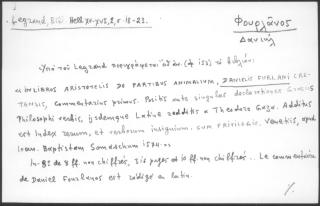 Legrand, Bibl. Hell. XV-XVI, 2, σ. 18-23.
Φουρλάνος
Δανιήλ
Ὑπό τοῦ Legrand περιγράφεται τό βιβλίον:
«IN LIBROS ARISTOTELIS DE PARTIBUS ANIMALIUM, DANIELIS FURLANI CRE-
TENSIS, commentarius primus. Positis ante singulas declarationes Graecis
Philosophi verbis, iisdemque Latine redditis a Theodoro Gaza. Additus
est Index rerum, et verborum insignium. CUM PRIVILEGIO. Venetiis, apud
Ioan. Baptistam Somaschum 1574.»
In-8º de 8 ff. non chiffrés, pages et 10 ff. non chiffrés... Le commentaire
de Daniel Fourlanos est rédigé en latin.